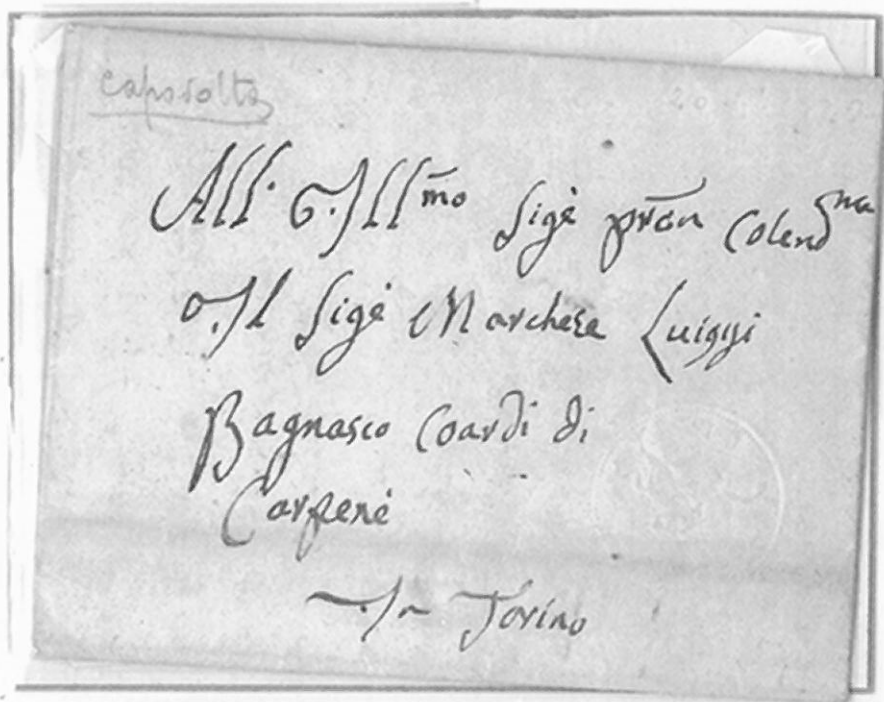 All' Ill.mo Sig.e pron Colend.mo
Il Sig.e Marchese Luiggi
Bagnasco Coardi di
Carpenè
In Torino